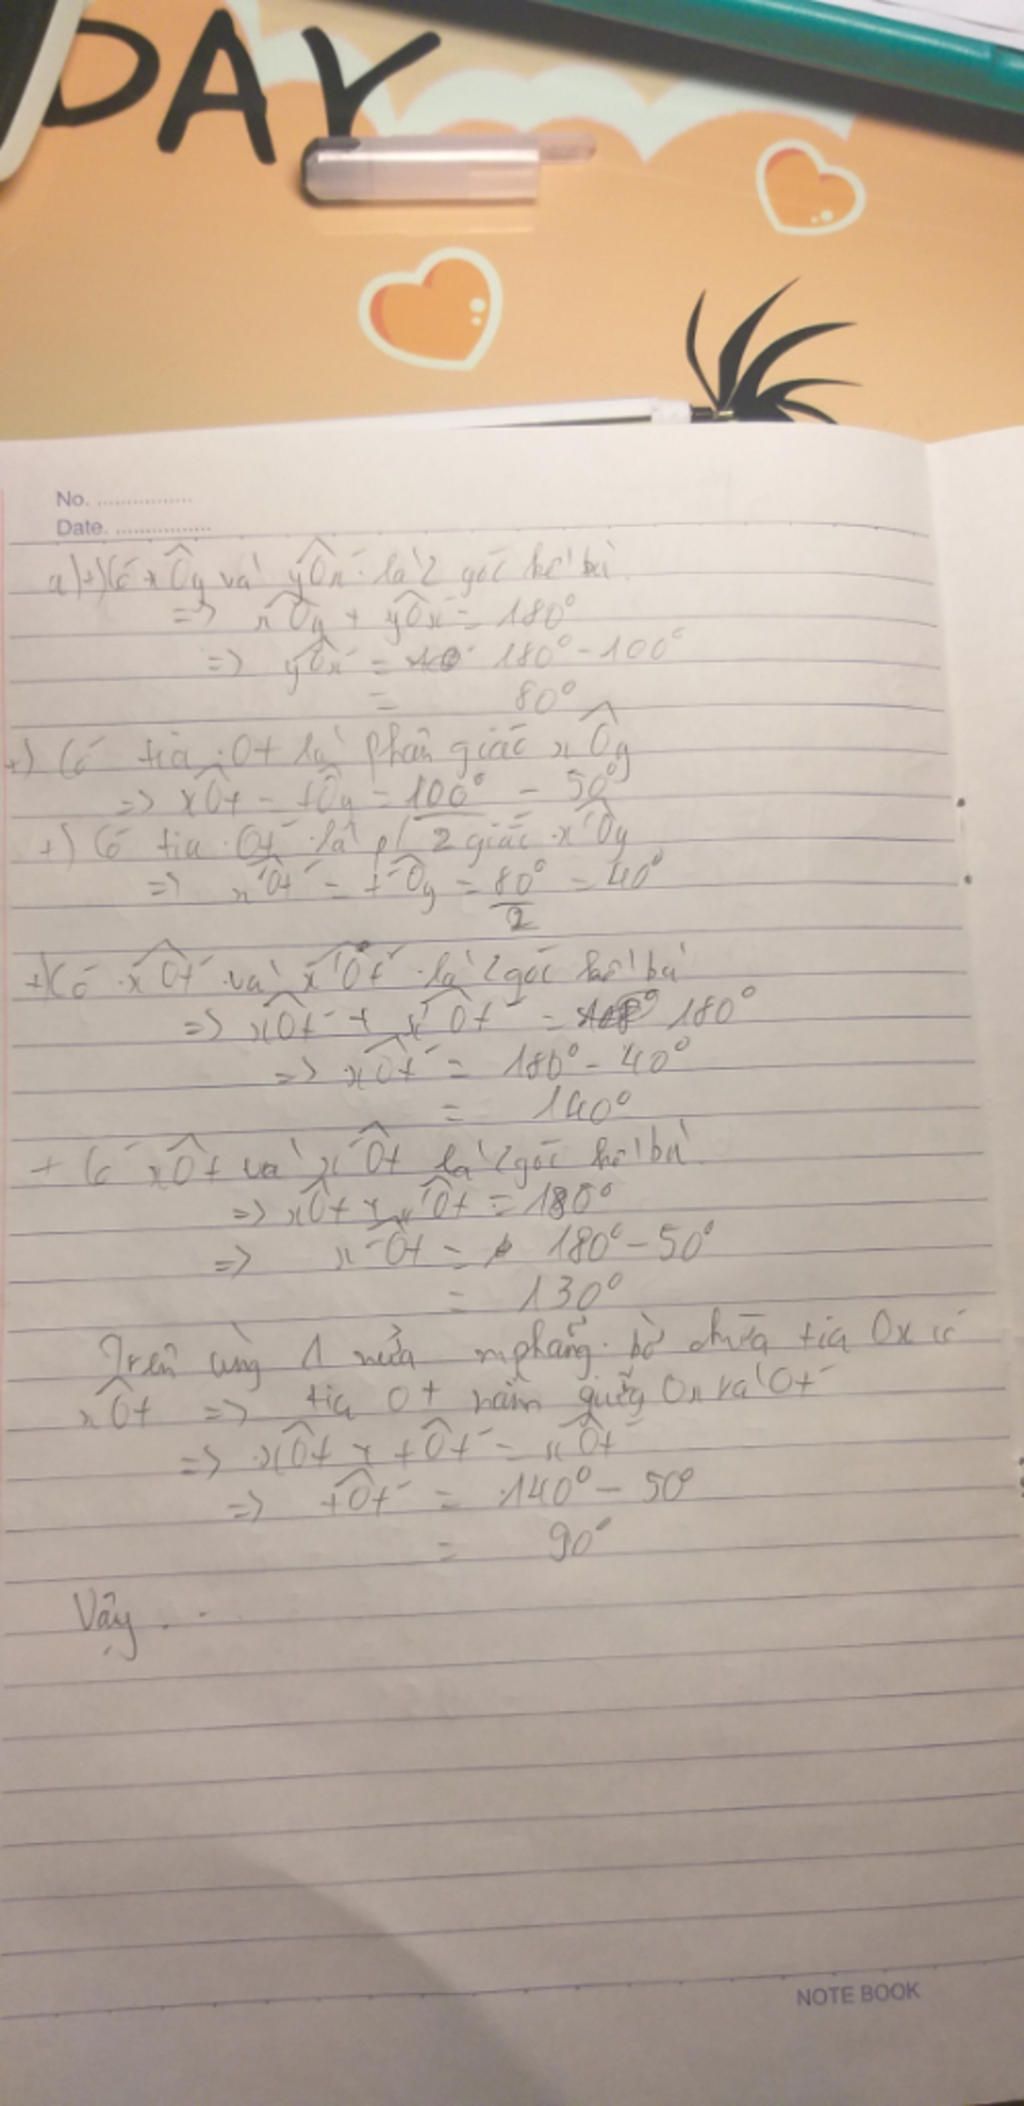 DAY
No. ................
Date. ................
a) +) Có xÔy và yÔx' là 2 góc kề bù
=> xÔy + yÔx' = 180°
=> yÔx' = 180° - 100°
= 80°
+) Có tia Ot là phân giác xÔy
=> xÔt = tÔy = 100°/2 = 50°
+) Có tia Ot' là p/giác x'Ôy
=> x'Ôt' = t'Ôy = 80°/2 = 40°
+) Có xÔt' và x'Ôt' là 2 góc kề bù
=> xÔt' + x'Ôt' = 180°
=> xÔt' = 180° - 40°
= 140°
+ Có xÔt và x'Ôt là 2 góc kề bù
=> xÔt + x'Ôt = 180°
=> x'Ôt = 180° - 50°
= 130°
Trên cùng 1 nửa mphẳng bờ chứa tia Ox có
xÔt => tia Ot nằm giữa Ox và Ot'
=> xÔt + tÔt' = xÔt'
=> tÔt' = 140° - 50°
= 90°
Vậy . .
NOTE BOOK